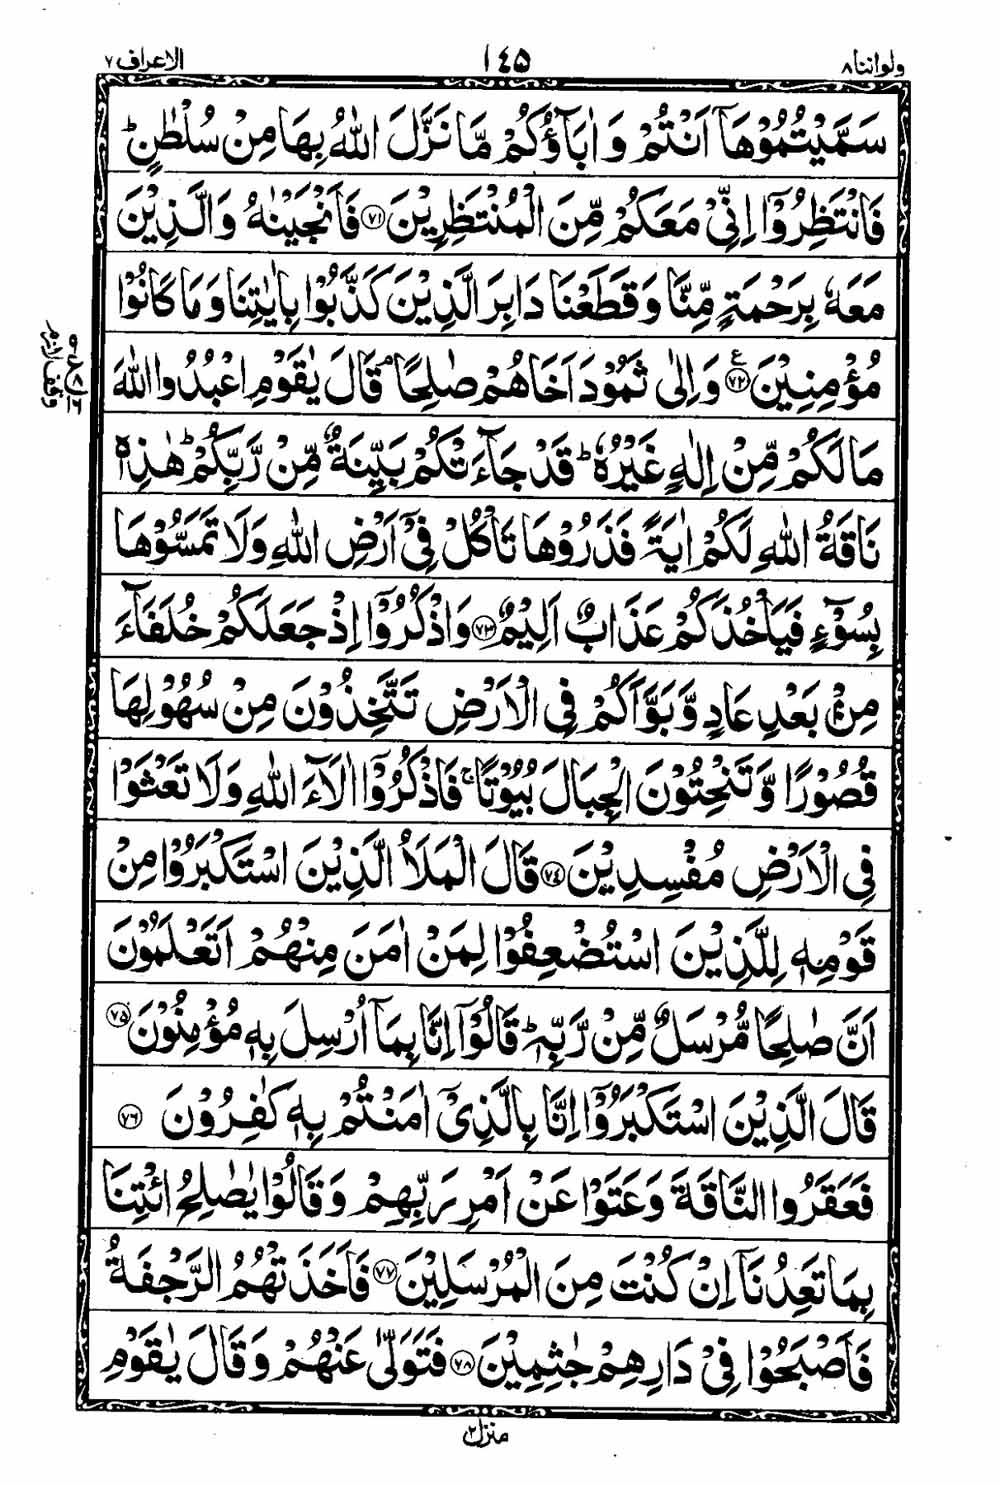 ولواننا ٨ ١٤٥ الاعراف ٧
سَمَّيْتُمُوْهَاۤ اَنْتُمْ وَ اٰبَآؤُكُمْ مَّا نَزَّلَ اللّٰهُ بِهَا مِنْ سُلْطٰنٍ ؕ
فَانْتَظِرُوْۤا اِنِّيْ مَعَكُمْ مِّنَ الْمُنْتَظِرِيْنَ ﴿٧١﴾ فَاَنْجَيْنٰهُ وَ الَّذِيْنَ
مَعَهٗ بِرَحْمَةٍ مِّنَّا وَ قَطَعْنَا دَابِرَ الَّذِيْنَ كَذَّبُوْا بِاٰيٰتِنَا وَ مَا كَانُوْا
مُؤْمِنِيْنَ ﴿٧٢﴾ ع وَ اِلٰى ثَمُوْدَ اَخَاهُمْ صٰلِحًا ۘ قَالَ يٰقَوْمِ اعْبُدُوا اللّٰهَ
مَا لَكُمْ مِّنْ اِلٰهٍ غَيْرُهٗ ؕ قَدْ جَآءَتْكُمْ بَيِّنَةٌ مِّنْ رَّبِّكُمْ ؕ هٰذِهٖ
نَاقَةُ اللّٰهِ لَكُمْ اٰيَةً فَذَرُوْهَا تَاْكُلْ فِيْۤ اَرْضِ اللّٰهِ وَ لَا تَمَسُّوْهَا
بِسُوْٓءٍ فَيَاْخُذَكُمْ عَذَابٌ اَلِيْمٌ ﴿٧٣﴾ وَ اذْكُرُوْۤا اِذْ جَعَلَكُمْ خُلَفَآءَ
مِنْۢ بَعْدِ عَادٍ وَّ بَوَّاَكُمْ فِي الْاَرْضِ تَتَّخِذُوْنَ مِنْ سُهُوْلِهَا
قُصُوْرًا وَّ تَنْحِتُوْنَ الْجِبَالَ بُيُوْتًا ۚ فَاذْكُرُوْۤا اٰلَآءَ اللّٰهِ وَ لَا تَعْثَوْا
فِي الْاَرْضِ مُفْسِدِيْنَ ﴿٧٤﴾ قَالَ الْمَلَاُ الَّذِيْنَ اسْتَكْبَرُوْا مِنْ
قَوْمِهٖ لِلَّذِيْنَ اسْتُضْعِفُوْا لِمَنْ اٰمَنَ مِنْهُمْ اَتَعْلَمُوْنَ
اَنَّ صٰلِحًا مُّرْسَلٌ مِّنْ رَّبِّهٖ ؕ قَالُوْۤا اِنَّا بِمَاۤ اُرْسِلَ بِهٖ مُؤْمِنُوْنَ ﴿٧٥﴾
قَالَ الَّذِيْنَ اسْتَكْبَرُوْۤا اِنَّا بِالَّذِيْۤ اٰمَنْتُمْ بِهٖ كٰفِرُوْنَ ﴿٧٦﴾
فَعَقَرُوا النَّاقَةَ وَ عَتَوْا عَنْ اَمْرِ رَبِّهِمْ وَ قَالُوْا يٰصٰلِحُ ائْتِنَا
بِمَا تَعِدُنَاۤ اِنْ كُنْتَ مِنَ الْمُرْسَلِيْنَ ﴿٧٧﴾ فَاَخَذَتْهُمُ الرَّجْفَةُ
فَاَصْبَحُوْا فِيْ دَارِهِمْ جٰثِمِيْنَ ﴿٧٨﴾ فَتَوَلّٰى عَنْهُمْ وَ قَالَ يٰقَوْمِ
منزل ٢